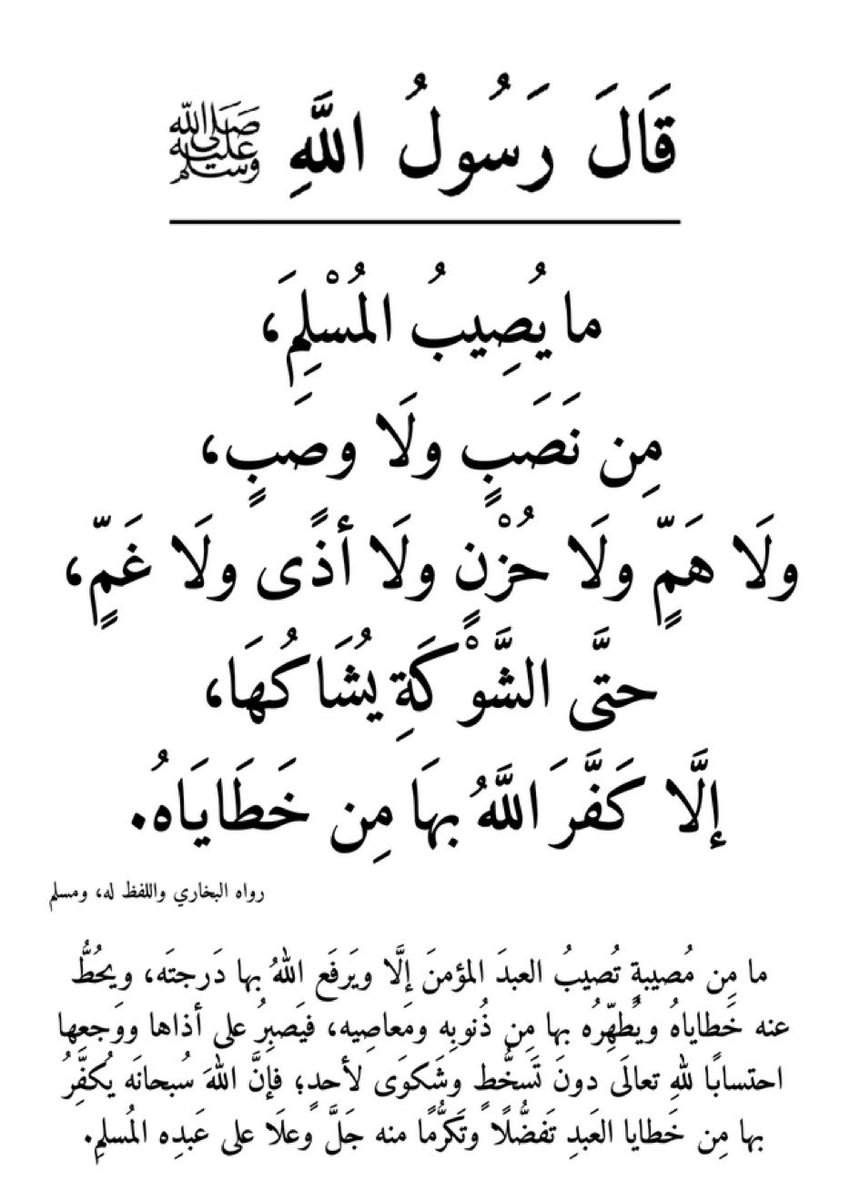 قَالَ رَسُولُ اللَّهِ ﷺ
ما يُصِيبُ المُسْلِمَ،
مِن نَصَبٍ ولَا وصَبٍ،
ولَا هَمٍّ ولَا حُزْنٍ ولَا أذًى ولَا غَمٍّ،
حتَّى الشَّوْكَةِ يُشَاكُهَا،
إلَّا كَفَّرَ اللَّهُ بهَا مِن خَطَايَاهُ.
رواه البخاري واللفظ له، ومسلم
ما مِن مُصيبةٍ تُصيبُ العبدَ المؤمنَ إلَّا ويَرفَع اللهُ بها دَرجتَه، ويحُطُّ
عنه خَطاياهُ ويُطهِّرُه بها مِن ذُنوبِه ومَعاصِيه، فيَصبِرُ على أذاها ووَجعِها
احتسابًا للهِ تعالَى دونَ تَسخُّطٍ وشَكوَى لأحدٍ؛ فإنَّ اللهَ سُبحانَه يُكفِّرُ
بها مِن خَطايا العَبدِ تَفضُّلًا وتَكرُّمًا منه جَلَّ وعلَا على عَبدِه المُسلمِ.